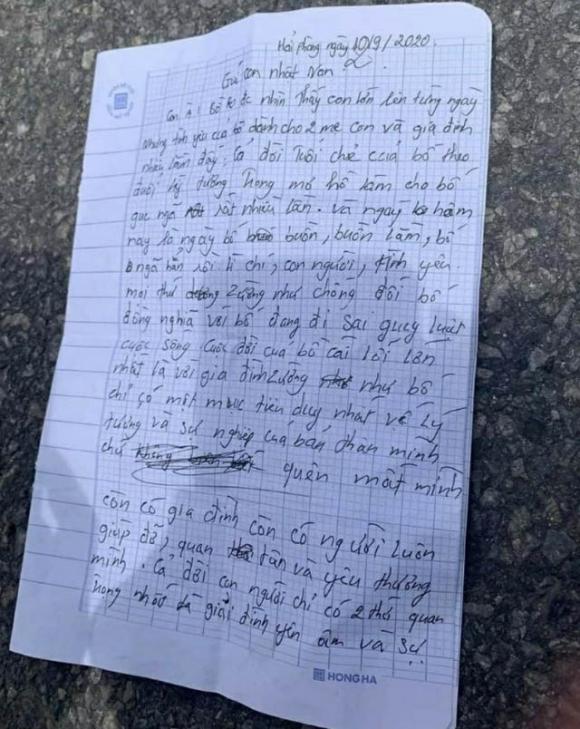 Hải phòng ngày 10/9/2020.
Gửi con nhật Non
Con à! Bố đc nhìn thấy con lớn lên từng ngày
Nhưng tình yêu của bố dành cho 2 mẹ con và gia đình
nhiều lắm đấy. Cả đời tuổi chẻ của bố theo
đuổi lý tưởng trong mơ hồ làm cho bố
gục ngã rất nhiều lần. và ngay hôm
nay là ngày bố buồn, buồn lắm, bố
ngã hẳn rồi lí chí, con người, tình yêu.
mọi thứ zường như chống đối bố
đồng nghĩa với bố đang đi sai quy luật
cuộc sống cuộc đời của bố cái lỗi lớn
nhất là với gia đình zường như bố
chỉ có một mục tiêu duy nhất về lý
tưởng và sự nghiệp của bản thân mình
chứ quên mất mình
còn có gia đình còn có người luôn
giúp đỡ, quan tân và yêu thương
mình. Cả đời con người chỉ có 2 thứ quan
trong nhất là giải đình yên ấm và sự
HONG HA